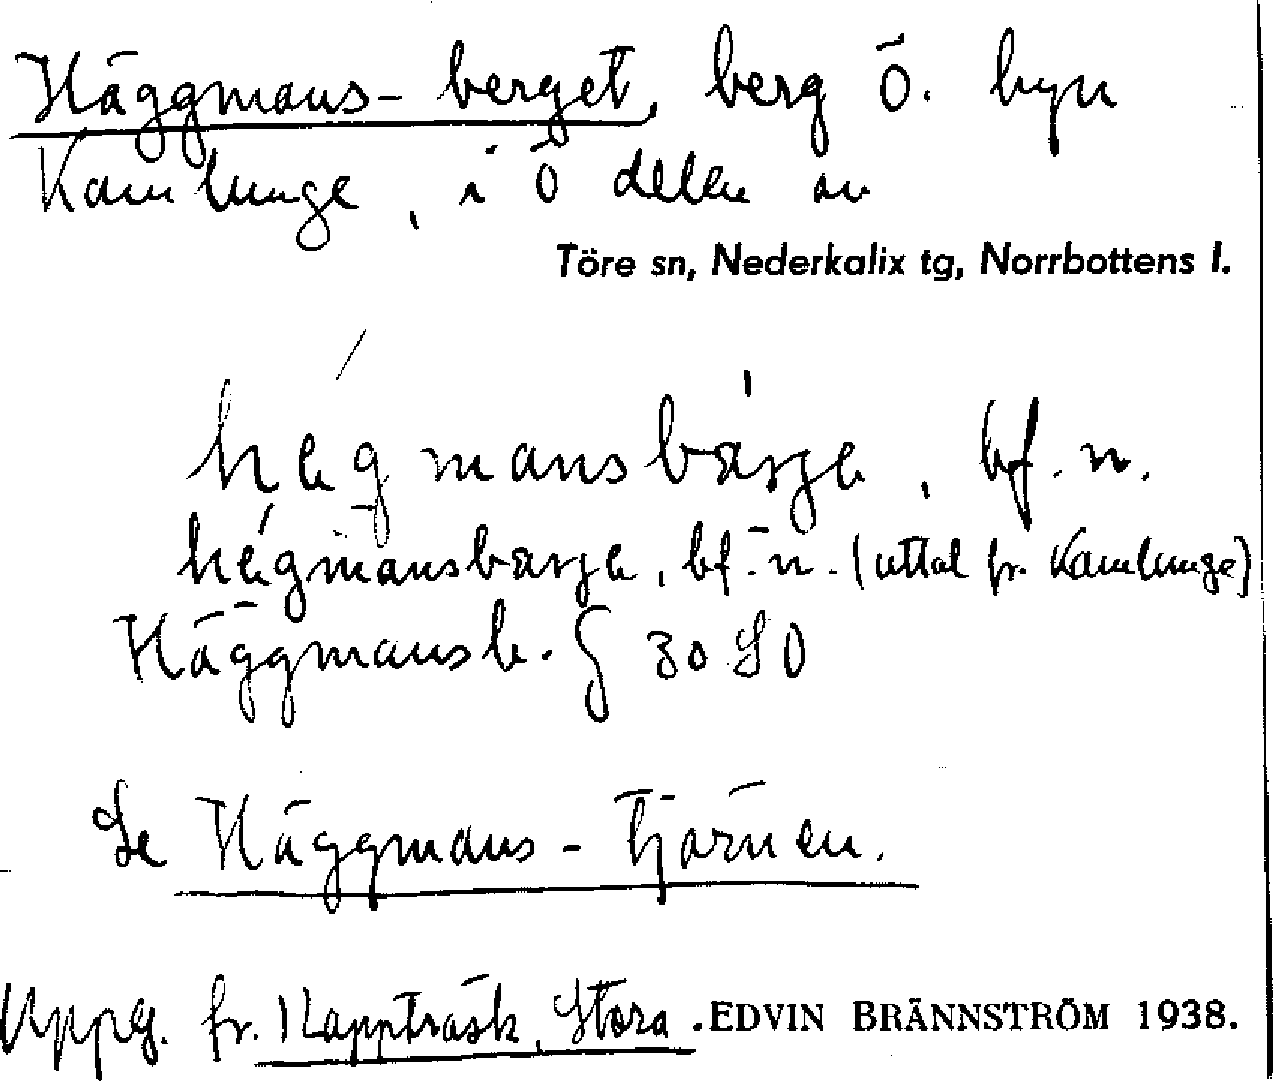 Häggmans-berget, berg Ö. byn
Kamlunge, i Ö delen av
Töre sn, Nederkalix tg, Norrbottens l.
bf. n.
bf. n. (uttal fr. Kamlunge)
Häggmansb. § 30 SO
Se Häggmans-tjärnen.
Uppg. fr. Kappträsk, Stora. EDVIN BRÄNNSTRÖM 1938.